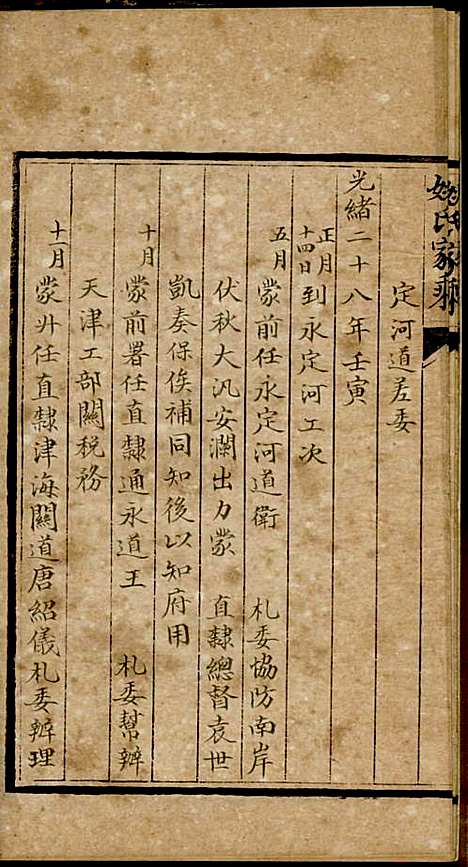 姚氏家乘
定河道差委
光緒二十八年壬寅
正月十四日到永定河工次
五月蒙前任永定河道衛 札委協防南岸
伏秋大汛安瀾出力蒙 直隸總督袁世
凱奏保俟補同知後以知府用
十月蒙前署任直隸通永道王 札委幫辦
天津工部關稅務
十一月蒙升任直隸津海關道唐紹儀札委辦理